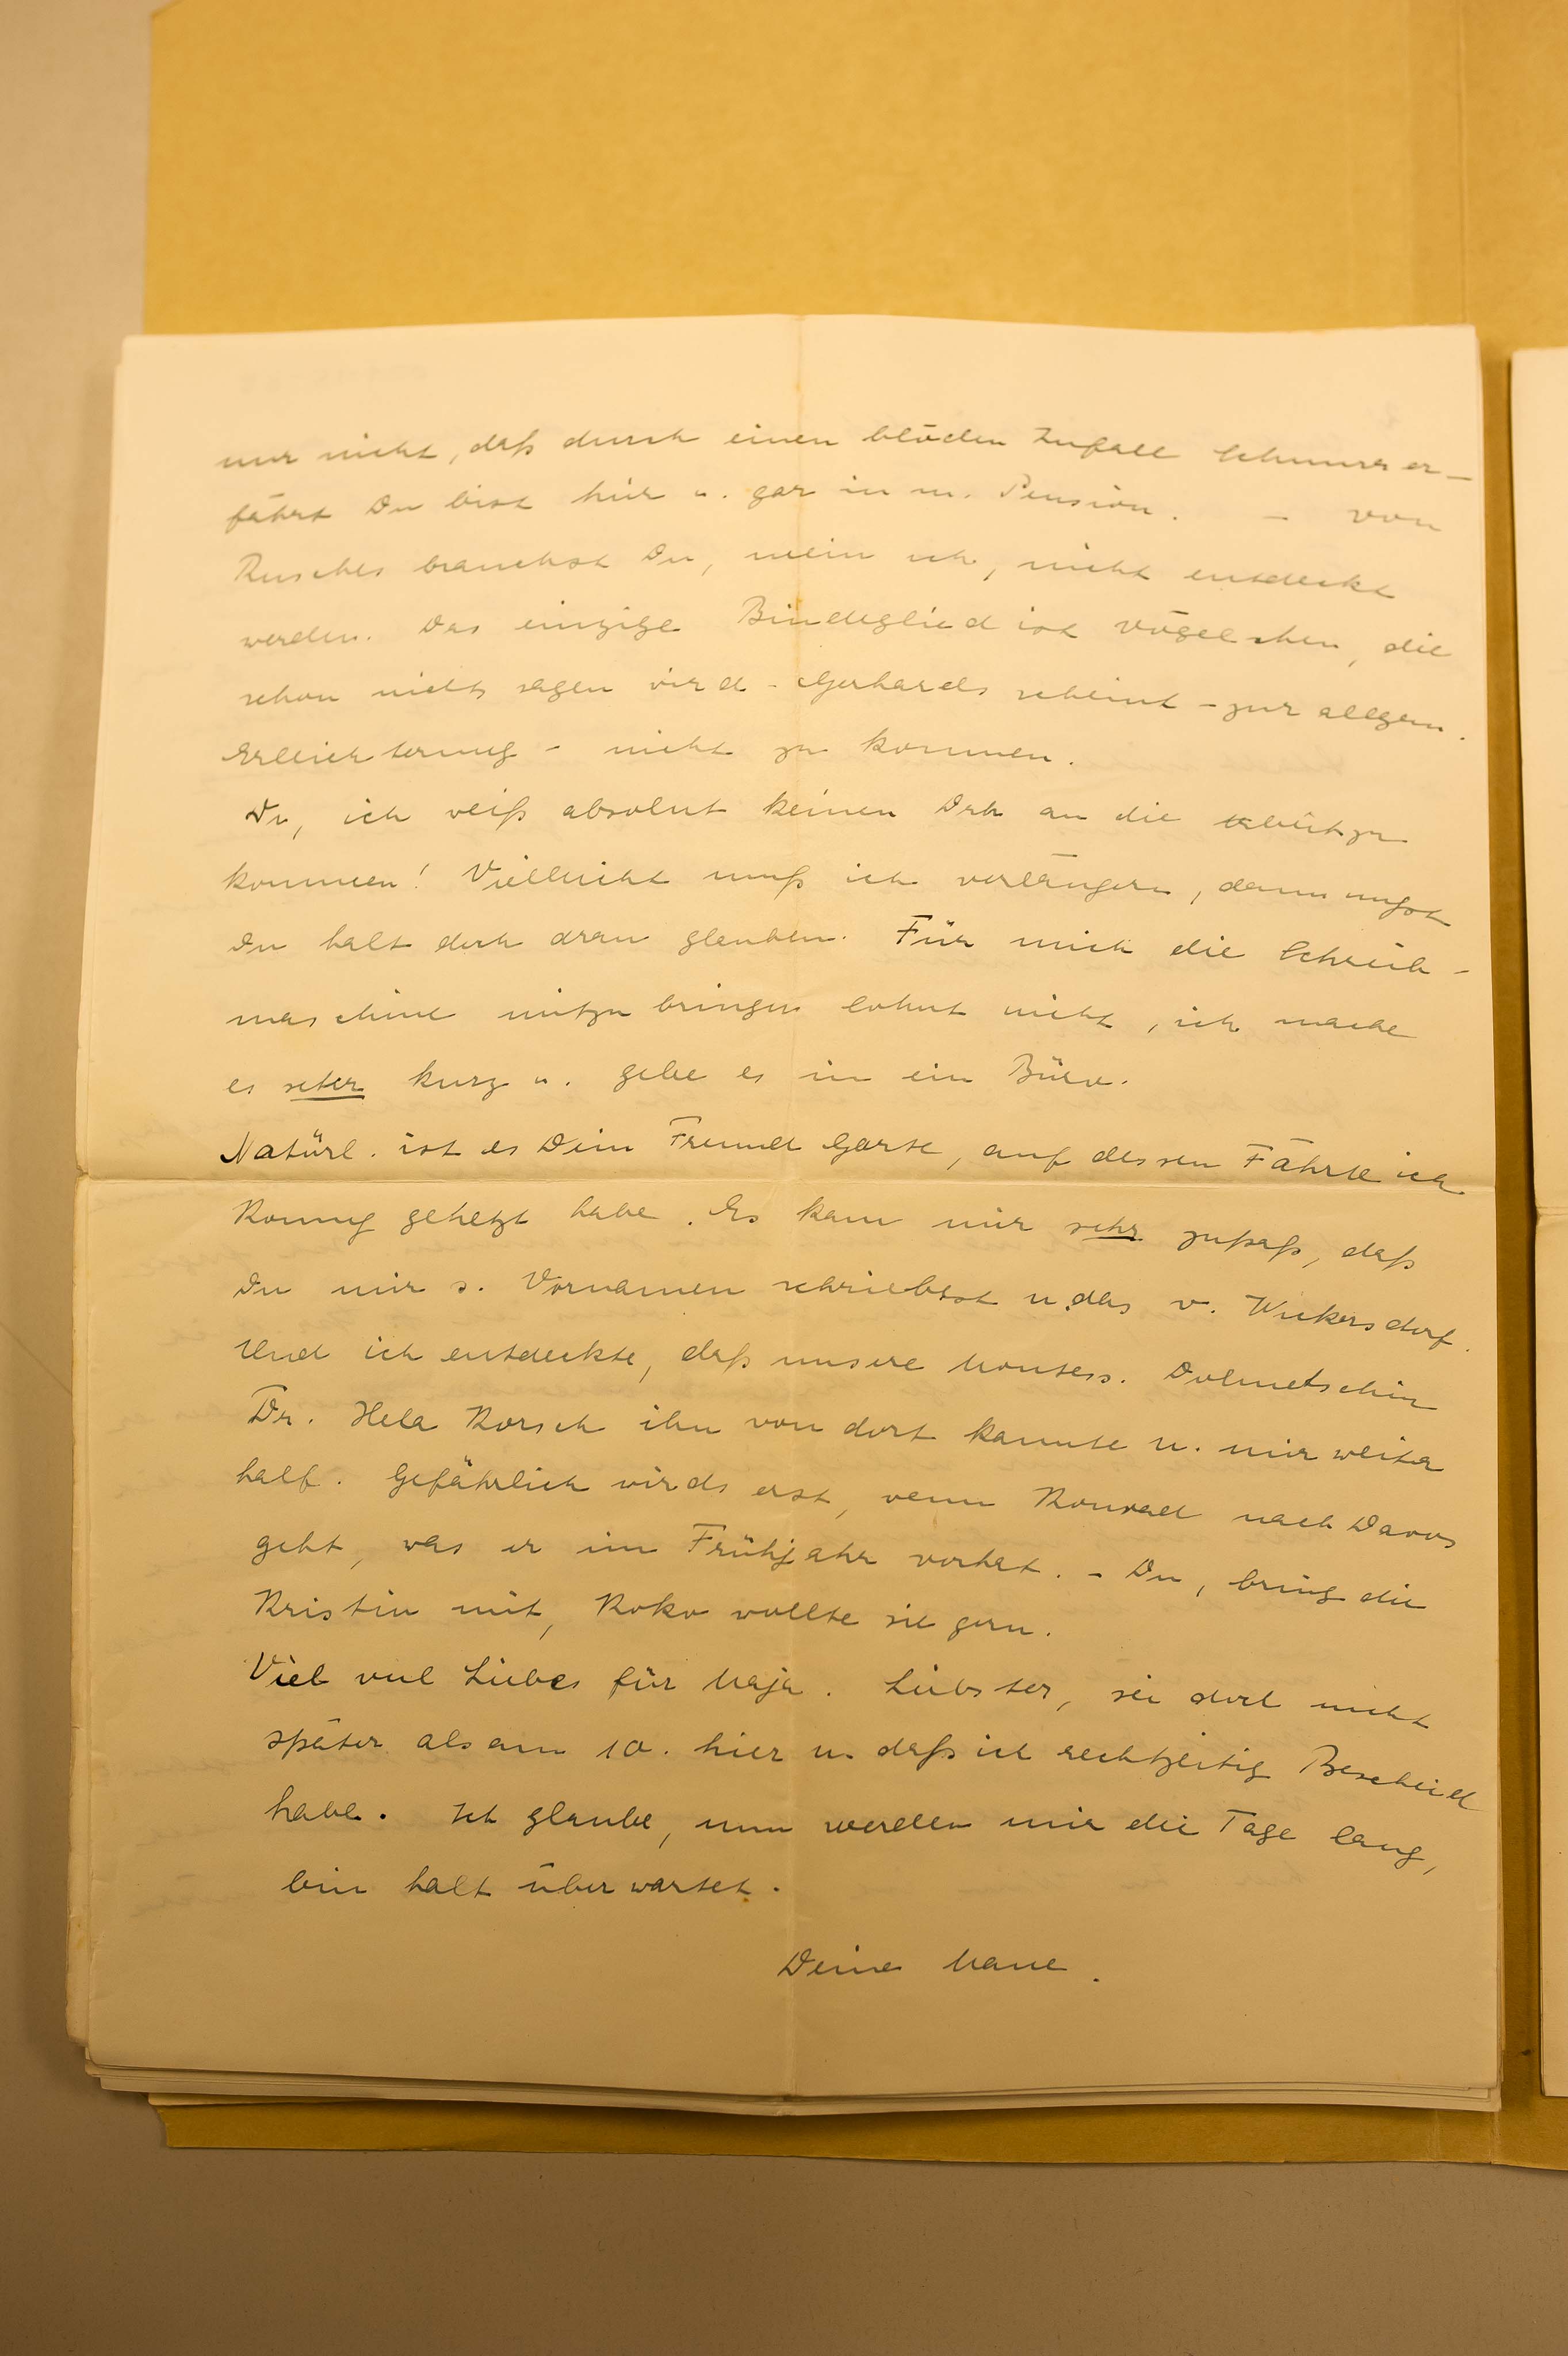 nur nicht, daß durch einen blöden Zufall Schumrs er-
fährt Du bist hier u. gar in m. Pension. – von
Rusches brauchst Du, mein ich, nicht entdeckt
werden. Das einzige Bindeglied ist Vögelchen, die
schon nichts sagen wird – Gerhards scheint – zur allgem.
Erleichterung – nicht zu kommen.
Du, ich weiß absolut keinen Dreh an die zu
kommen! Vielleicht muß ich verlängern, dann mußt
Du halt doch dran glauben. Für mich die Schreib-
maschine mitzubringen lohnt nicht, ich mache
es sehr kurz u. gebe es in ein Büro.
Natürl. ist es Dein Freund Garte, auf dessen Fährte ich
Konny gehetzt habe. Es kam mir sehr zupaß, daß
Du mir s. Vornamen schriebst u. das v. Wickersdorf.
Und ich entdeckte, daß unsere Montess. Dolmetschin
Dr. Hela Korsch ihn von dort kannte u. mir weiter
half. Gefährlich wirds erst, wenn Konrad nach Davos
geht, was er im Frühjahr vorhat. – Du, bring die
Kristin mit, Koko wollte sie gern.
Viel viel Liebes für Maja. Liebster, sei doch nicht
später als am 10. hier u. daß ich rechtzeitig Bescheid
habe. Ich glaube, nun werden mir die Tage lang,
bin halt überwartet.
Deine Mane.